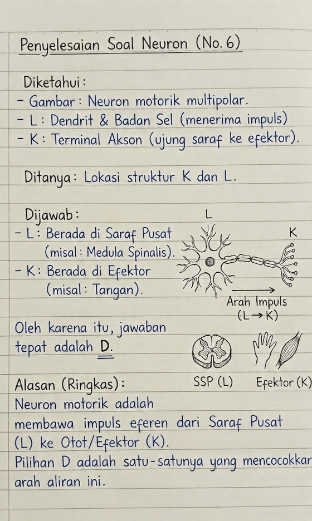 Penyelesaian Soal Neuron (No. 6)
Diketahui:
- Gambar: Neuron motorik multipolar.
- L: Dendrit & Badan Sel (menerima impuls)
- K: Terminal Akson (ujung saraf ke efektor).
Ditanya: Lokasi struktur K dan L.
Dijawab:
- L: Berada di Saraf Pusat
(misal: Medula Spinalis).
- K: Berada di Efektor
(misal: Tangan).
L
K
Arah Impuls
(L→K)
Oleh karena itu, jawaban
tepat adalah D.
SSP (L)
Efektor (K)
Alasan (Ringkas):
Neuron motorik adalah
membawa impuls eferen dari Saraf Pusat
(L) ke Otot/Efektor (K).
Pilihan D adalah satu-satunya yang mencocokkar
arah aliran ini.